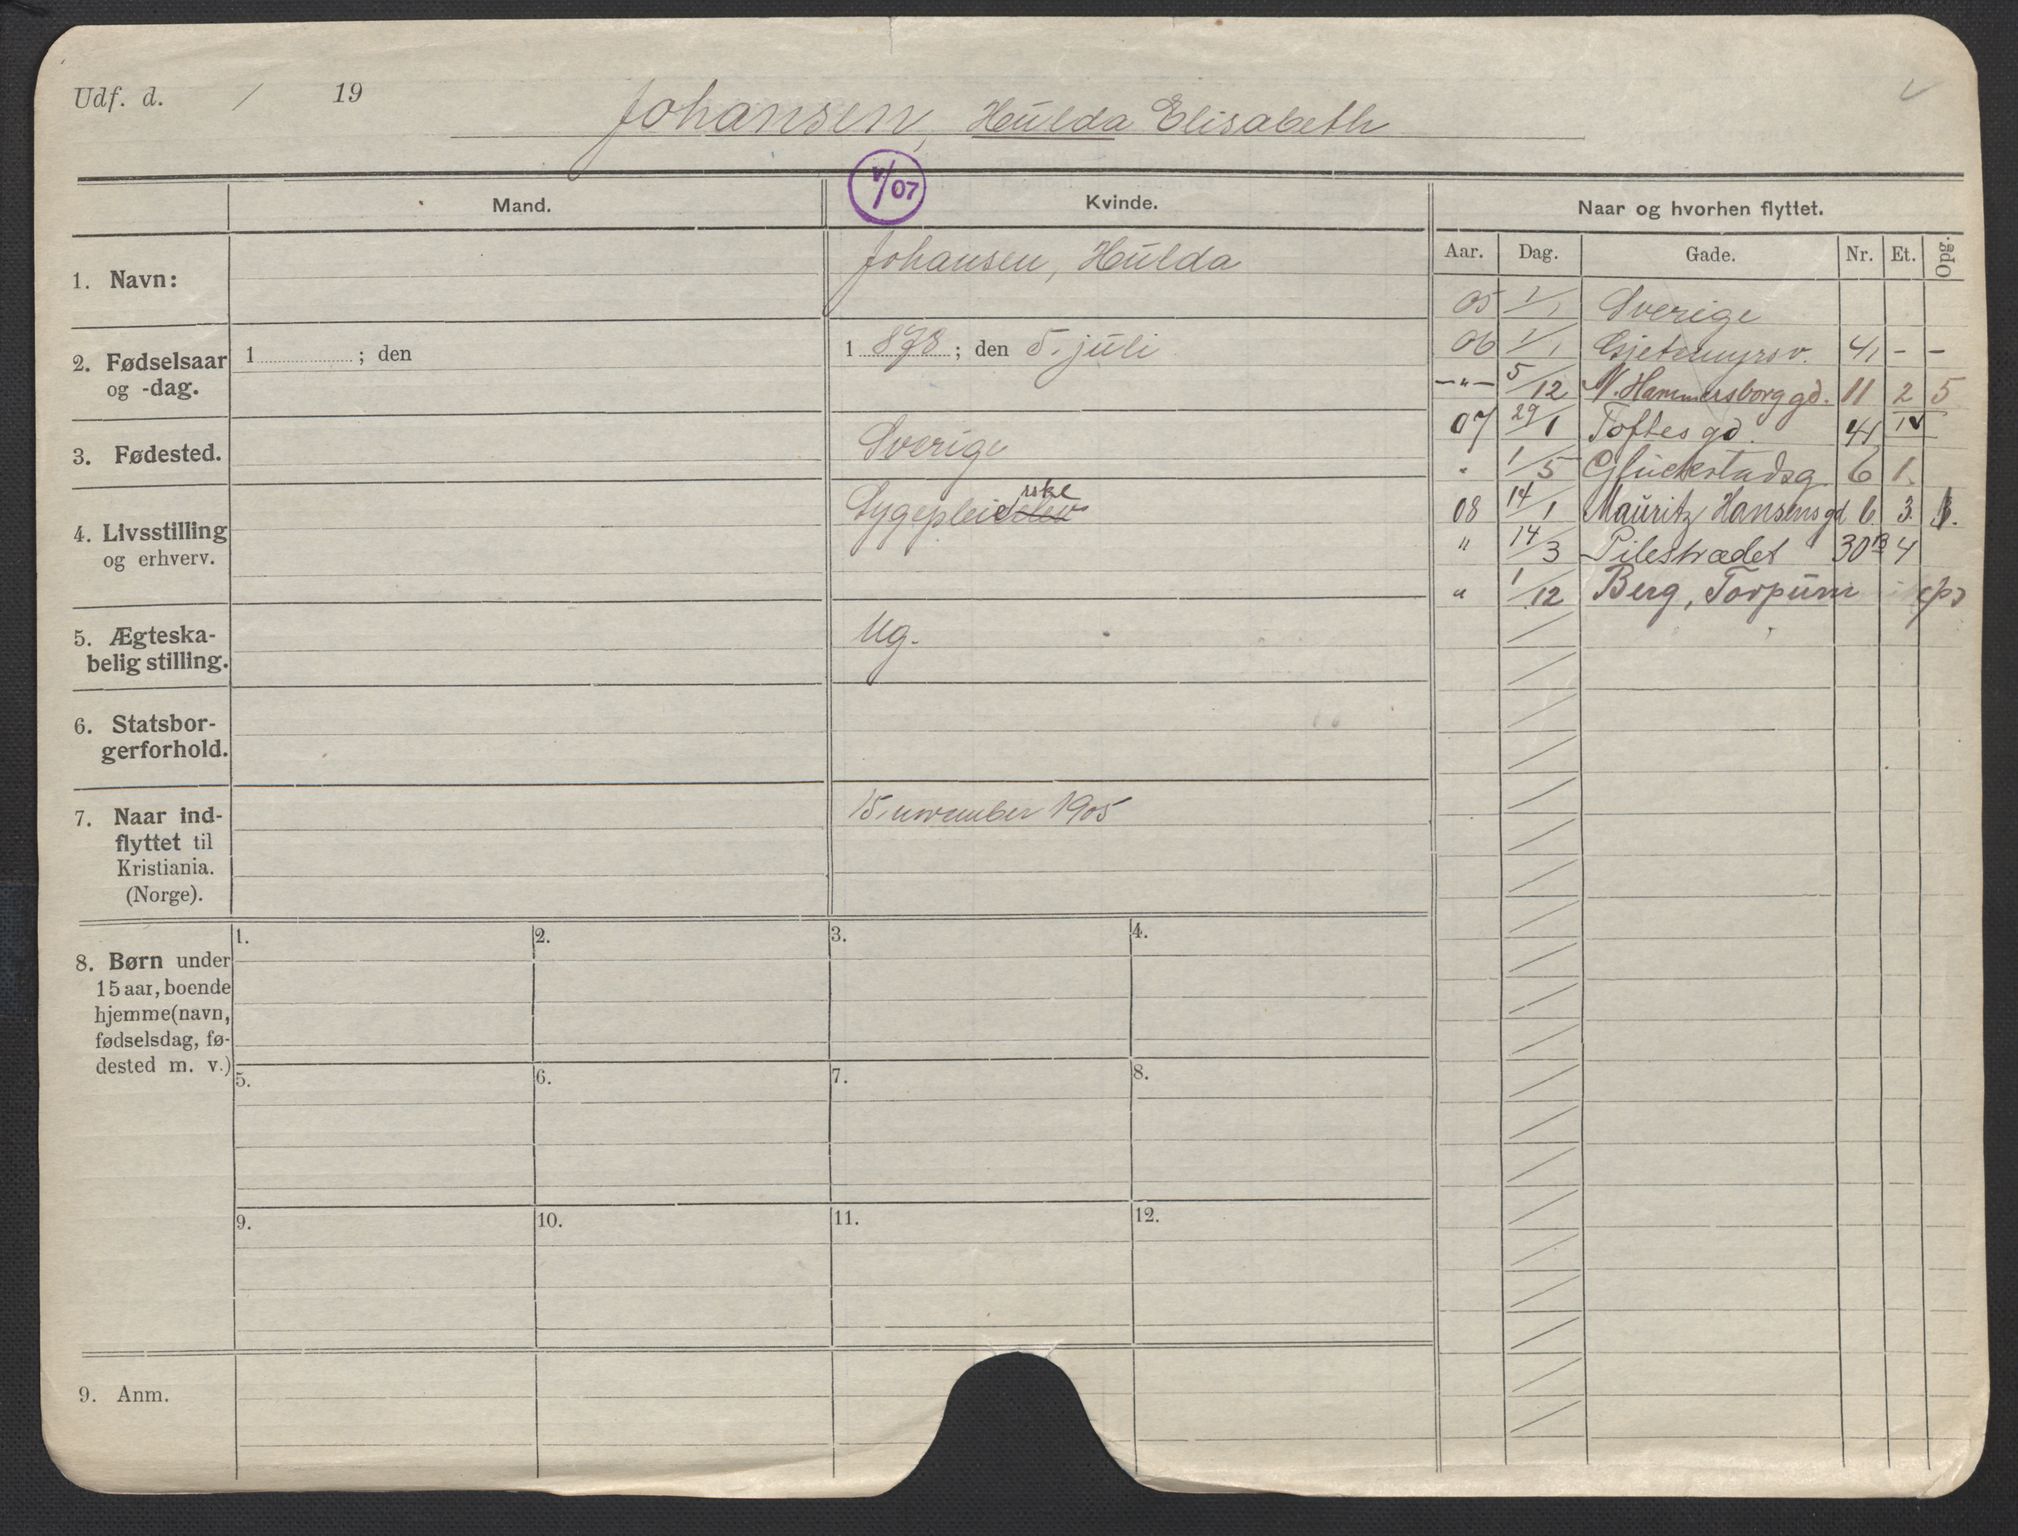 Udf. d. / 19
Johansen, Hulda Elisabeth
V/07
Mand.
Kvinde.
Naar og hvorhen flyttet.
Aar. Dag. Gade. Nr. Et. Opg.
1. Navn:
Johansen, Hulda
2. Fødselsaar
og -dag.
1 ; den
1 878 ; den 5. juli
3. Fødested.
Sverige
4. Livsstilling
og erhverv.
rske
Sygepleieelev
5. Ægteska-
belig stilling.
Ug.
6. Statsbor-
gerforhold.
7. Naar ind-
flyttet til
Kristiania.
(Norge).
15. november 1905
05 1/1 Sverige
06 1/1 Gjetemyrsv. 41 - -
-"- 5/12 N. Hammersborggd. 11 2 5
07 29/1 Toftes gd. 41 IV
" 1/5 Glückstadsg. 6 1.
08 14/1 Mauritz Hansens gd 6 3.
" 14/3 Pilestrædet 30 B 4
" 1/12 Berg, Torpum
8. Børn under
15 aar, boende
hjemme (navn,
fødselsdag, fø-
dested m. v.)
1. 2. 3. 4.
5. 6. 7. 8.
9. 10. 11. 12.
9. Anm.